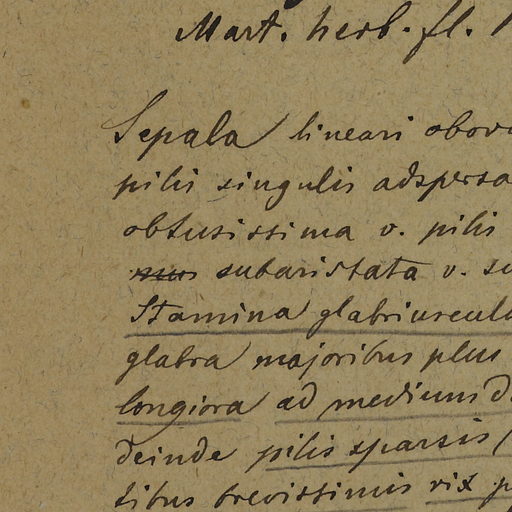 Mart. herb. fl.
Sepala lineari obov
pilis singulis adspersa
obtusissima v. pilis
subaristata v. su
Stamina glabriuscul
glabra majoribus plus
longiora ad medium d
deinde pilis sparsis
tibus brevissimis vix p